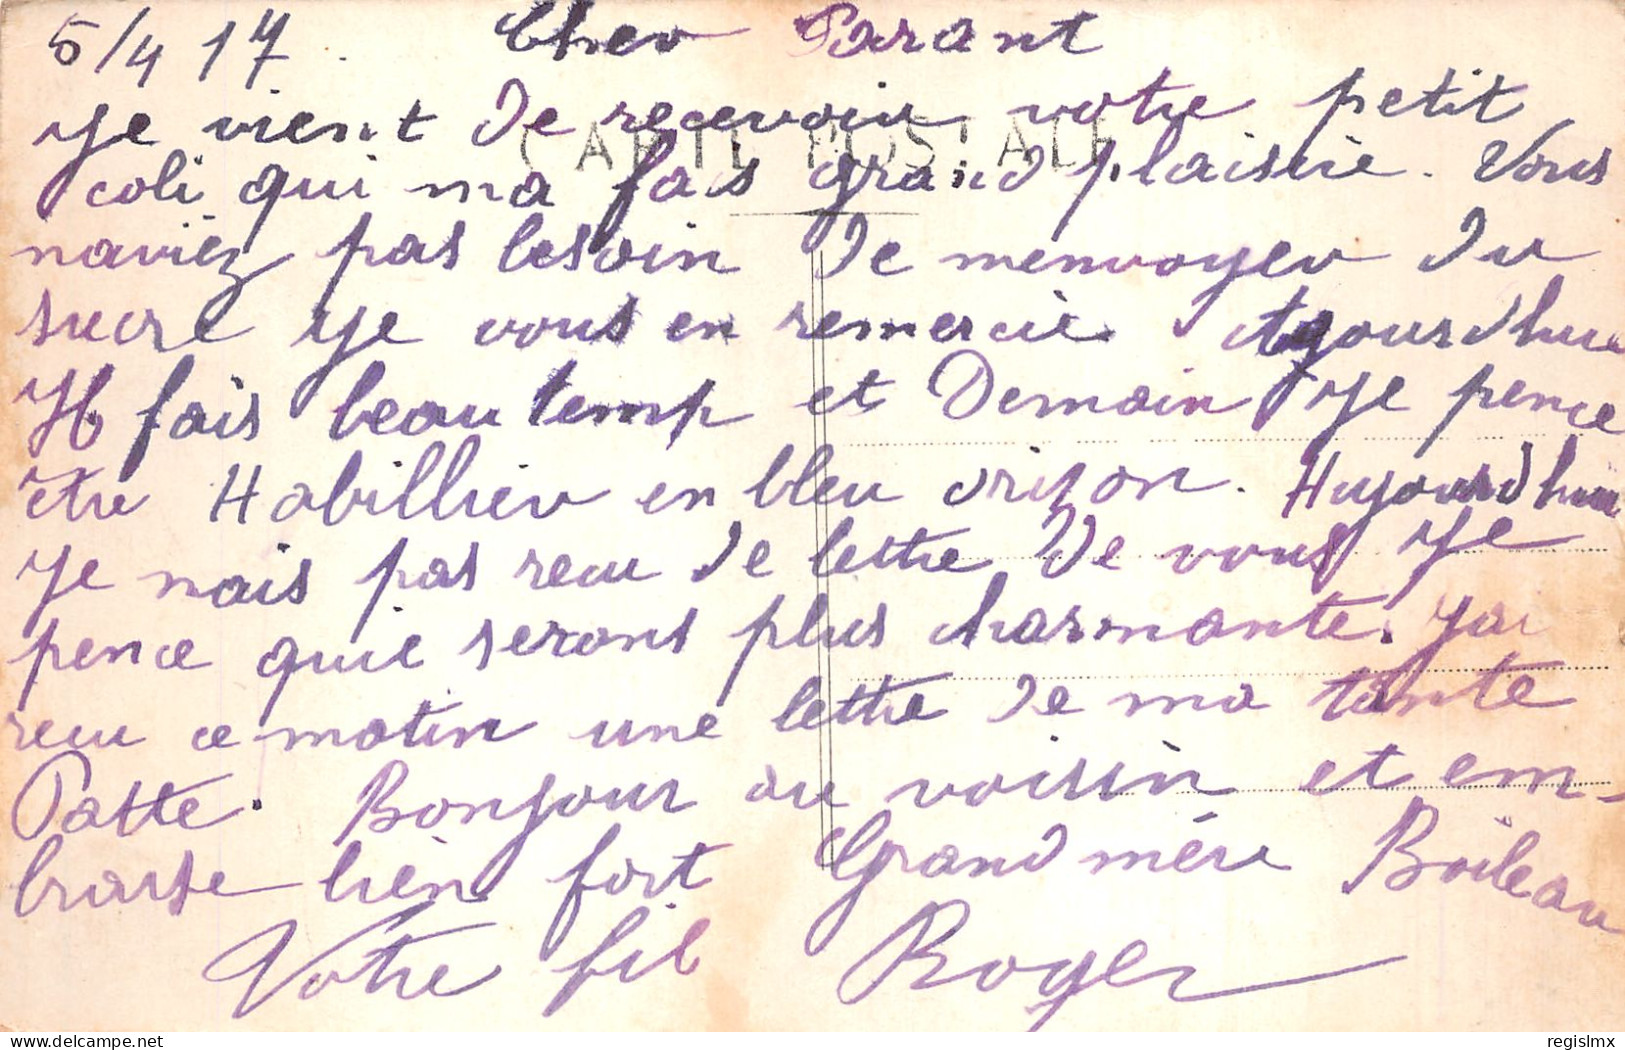 5/4 17. Cher Parant
Je vient de recevoir votre petit
CARTE POSTALE
coli qui ma fais grand plaisire. Vous
naviez pas besoin de menvoyer du
sucre Je vous en remercie Aujourdhui
Il fais beau temp et Demain Je pence
etre Habillier en bleu orizon. Aujourdhui
Je nais pas recu de lettre de vous Je
pence quie serons plus charmante. Jai
recu ce matin une lettre de ma tante
Patte. Bonjour au voisin et em-
brasse bien fort Grand mère Boileau
Votre fil Roger
delcampe.net
regislmx